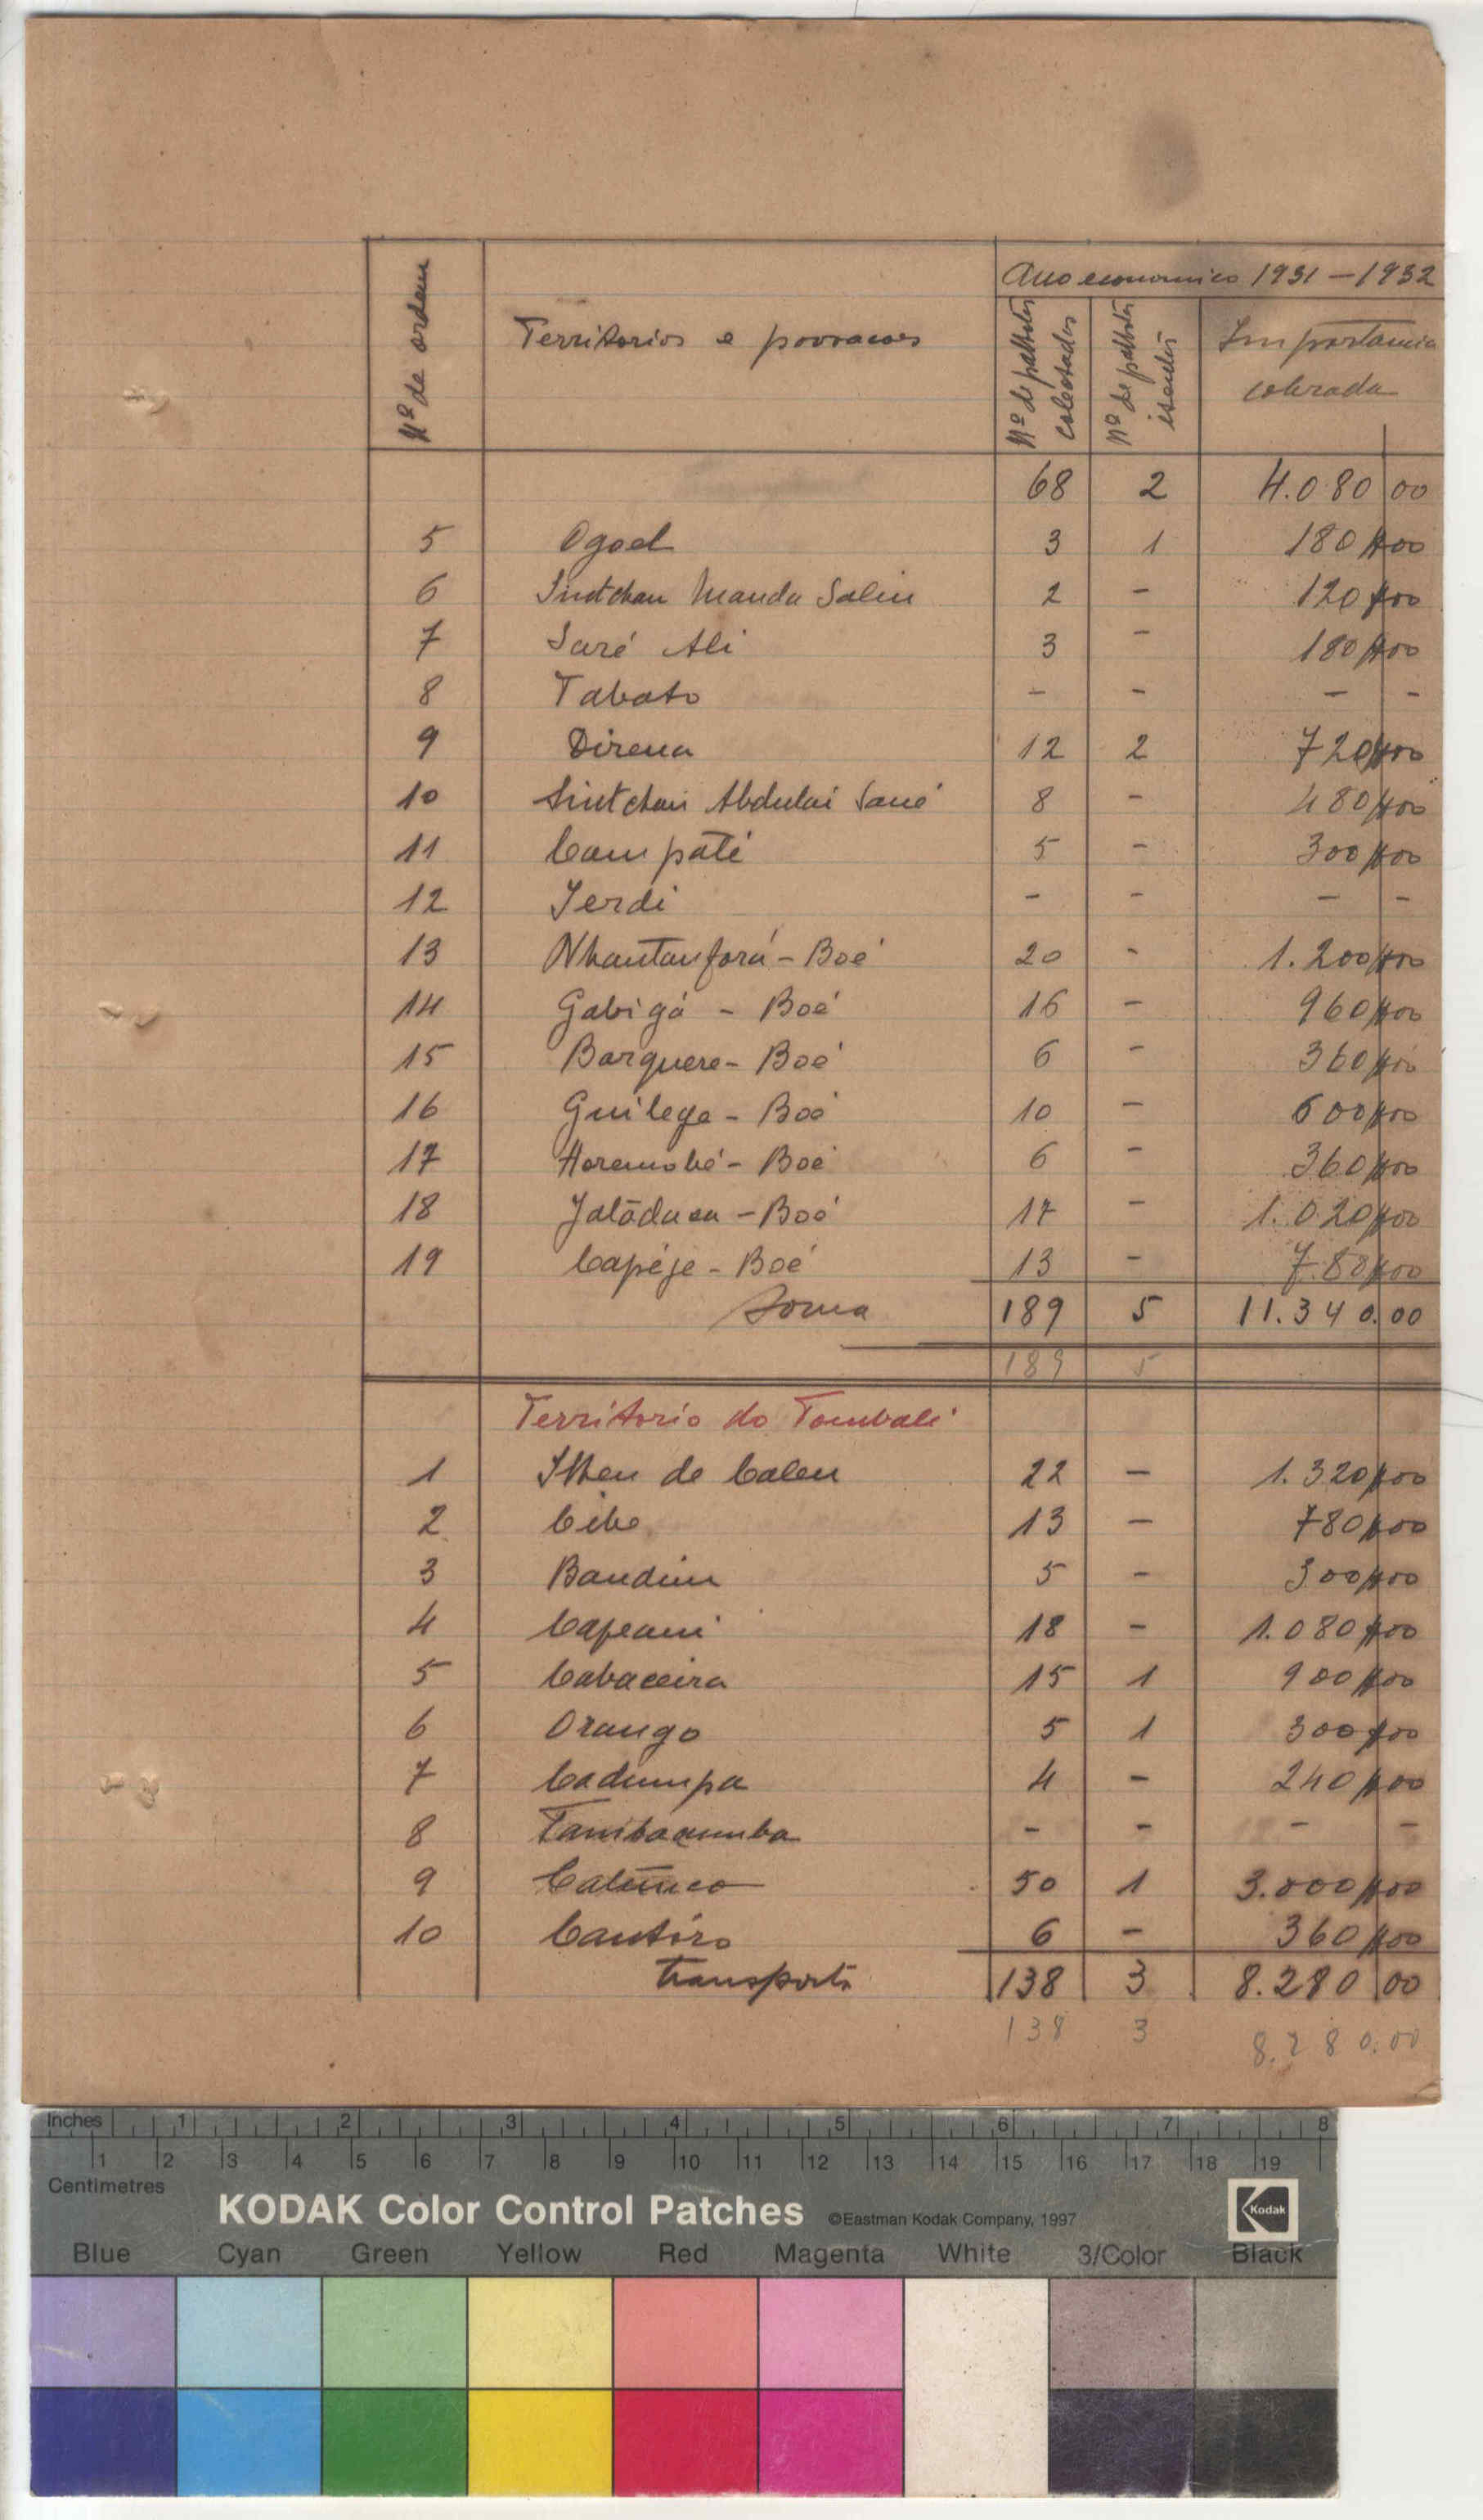 Nº de ordem
Territorios e povoacoes
Ano economico 1931 – 1932
Nº de palhotas colectadas
Nº de palhotas isentas
Importancia cobrada
68 2 4.080 00
5 Ogoel 3 1 180$00
6 Sintchan Manda Saliu 2 - 120$00
7 Saré Ali 3 - 180$00
8 Tabato - - - -
9 Direna 12 2 720$00
10 Sintchan Abdulai Sané 8 - 480$00
11 Campaté 5 - 300$00
12 Jerdi - - - -
13 Nhantanfará - Boé 20 - 1.200$00
14 Gabigá - Boé 16 - 960$00
15 Barquere - Boé 6 - 360$00
16 Guilege - Boé 10 - 600$00
17 Horemobé - Boé 6 - 360$00
18 - Boé 17 - 1.020$00
19 Capéje - Boé 13 - 780$00
Soma 189 5 11.340.00
189 5
Territorio do Tombali
1 de Calen 22 - 1.320$00
2 Cibe 13 - 780$00
3 Bandim 5 - 300$00
4 Cafeami 18 - 1.080$00
5 Cabaceira 15 1 900$00
6 Orango 5 1 300$00
7 Cadumpa 4 - 240$00
8 - - - -
9 50 1 3.000$00
10 Cantóro 6 - 360$00
Transporte 138 3 8.280 00
138 3 8.280.00
Inches 1 2 3 4 5 6 7 8
1 2 3 4 5 6 7 8 9 10 11 12 13 14 15 16 17 18 19
Centimetres
KODAK Color Control Patches ©Eastman Kodak Company, 1997 Kodak
Blue Cyan Green Yellow Red Magenta White 3/Color Black